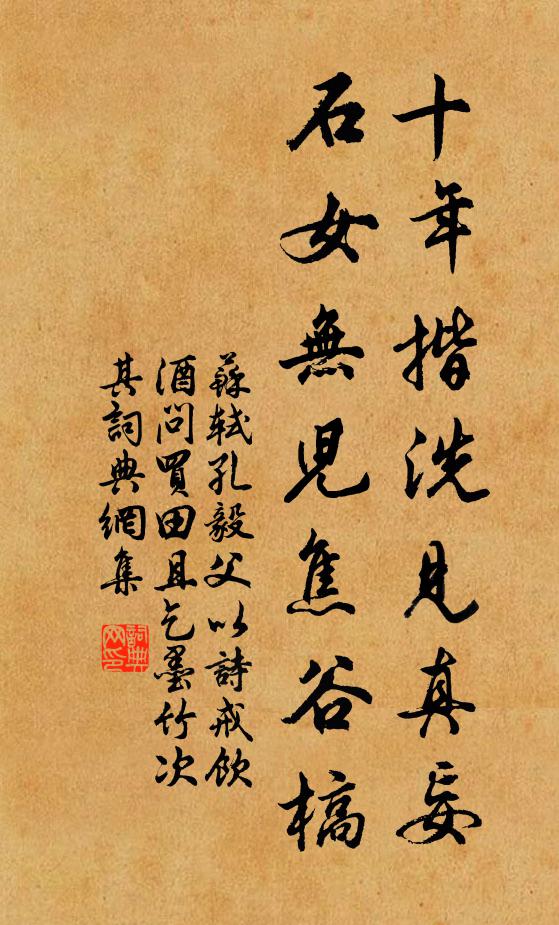 十年揩洗見真妄
石女無兒焦谷槁
蘇軾孔毅父以詩戒飲
酒問買田且乞墨竹次
其詞典網集
詞典网印